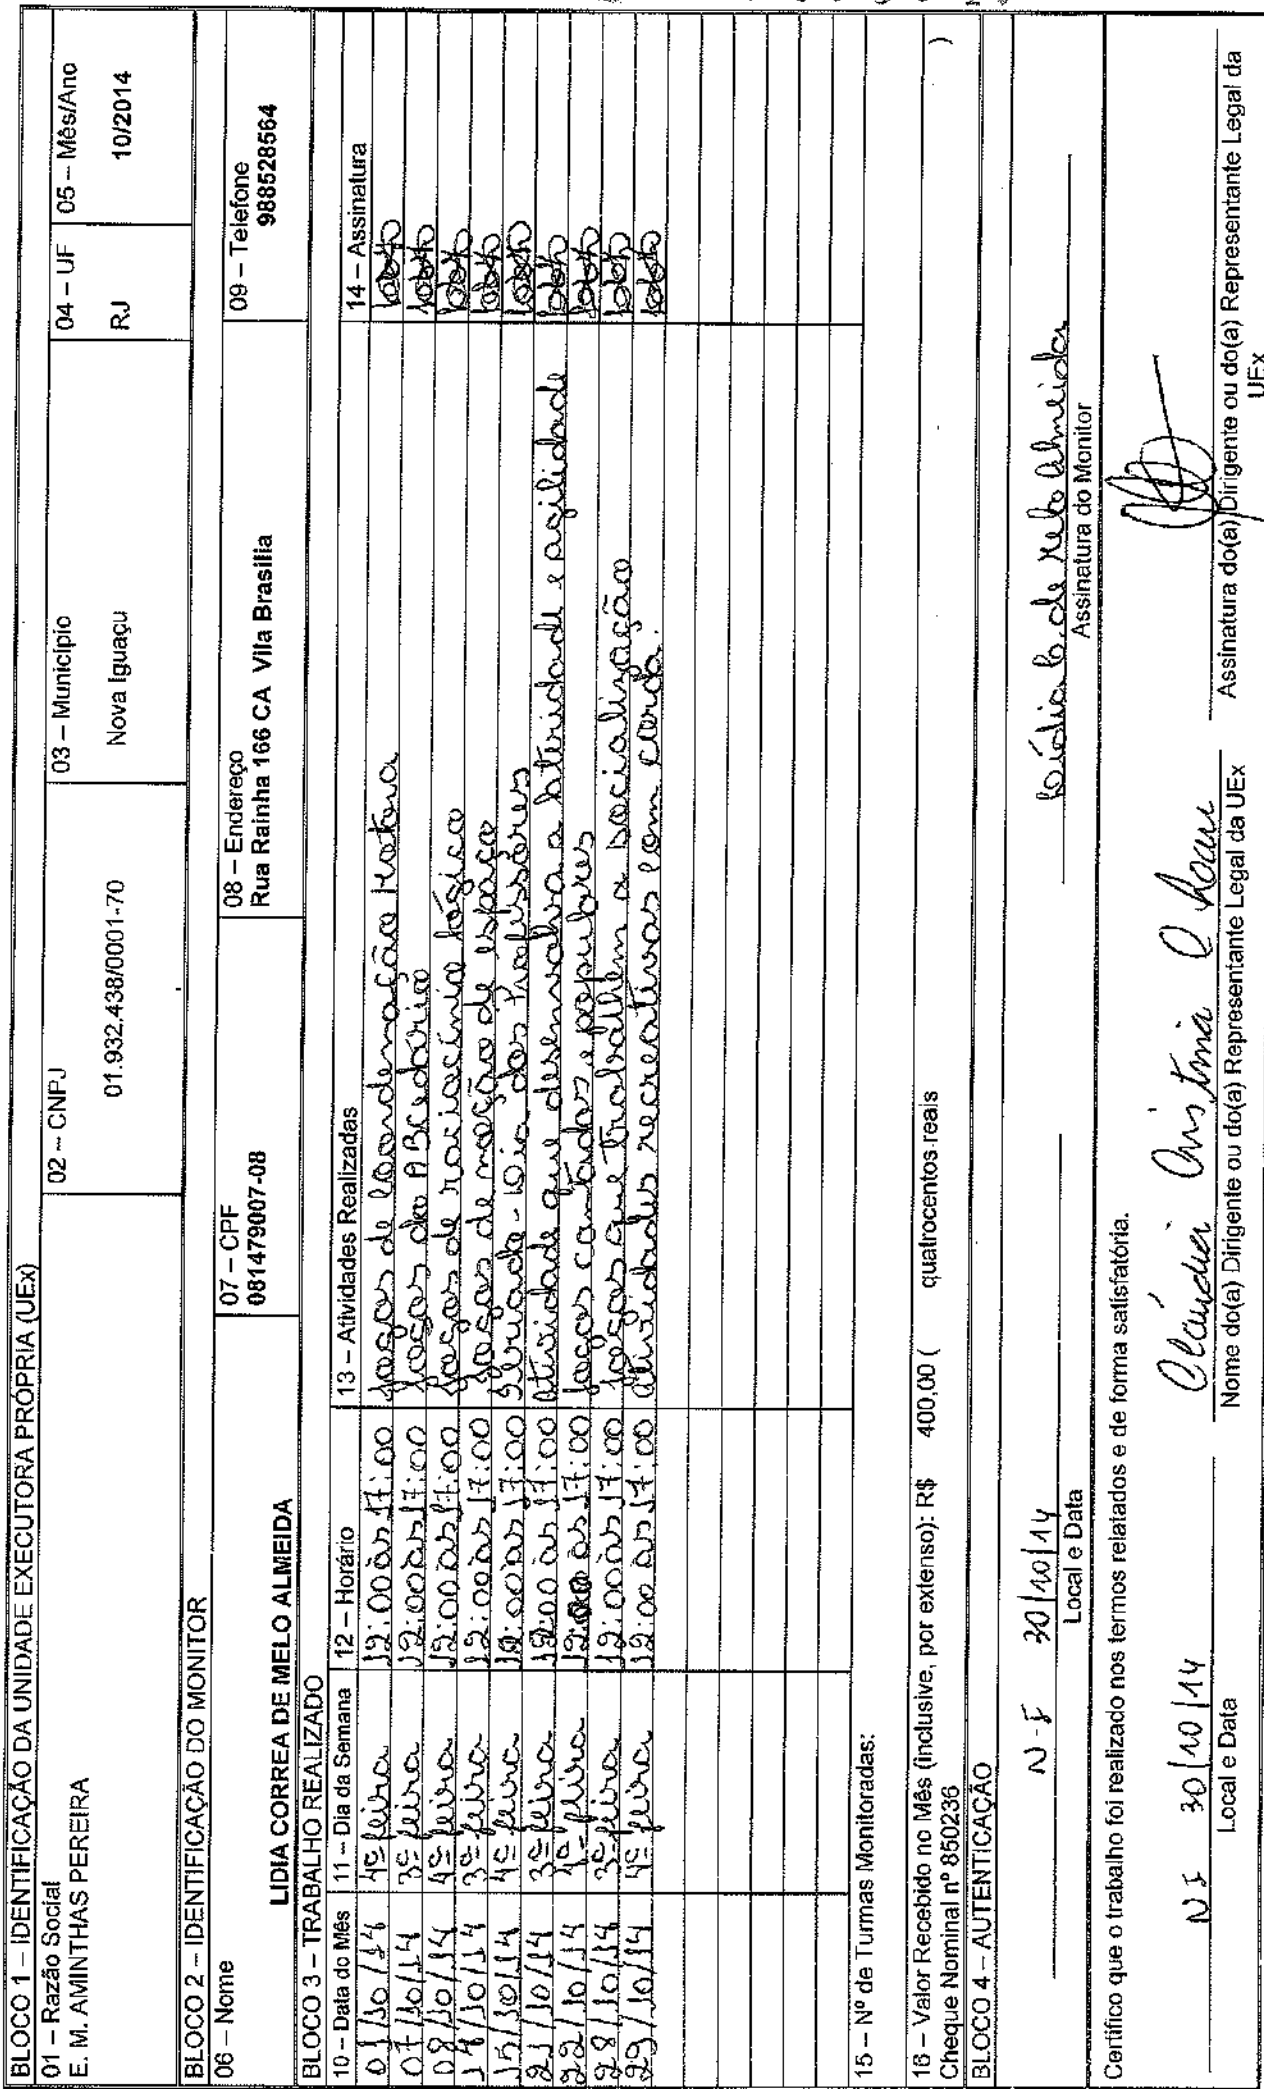 BLOCO 1 – IDENTIFICAÇÃO DA UNIDADE EXECUTORA PRÓPRIA (UEx)
01 – Razão Social
E. M. AMINTHAS PEREIRA
02 – CNPJ
01.932.438/0001-70
03 – Município
Nova Iguaçu
04 – UF
RJ
05 – Mês/Ano
10/2014
BLOCO 2 – IDENTIFICAÇÃO DO MONITOR
06 – Nome
LIDIA CORREA DE MELO ALMEIDA
07 – CPF
081479007-08
08 – Endereço
Rua Rainha 166 CA Vila Brasilia
09 – Telefone
988528564
BLOCO 3 – TRABALHO REALIZADO
10 – Data do Mês 11 – Dia da Semana 12 – Horário 13 – Atividades Realizadas 14 – Assinatura
01/10/14 4ª feira 12:00 às 17:00 Jogos de Coordenação Motora
07/10/14 3ª feira 12:00 às 17:00 Jogos do ABCedário
08/10/14 4ª feira 12:00 às 17:00 Jogos de raciocínio lógico
14/10/14 3ª feira 12:00 às 17:00 Jogos de noção de espaço
15/10/14 4ª feira 12:00 às 17:00 Feriado - Dia dos Professores
21/10/14 3ª feira 12:00 às 17:00 Atividade que desenvolva a atividade e agilidade
22/10/14 4ª feira 12:00 às 17:00 Jogos cantados e populares
28/10/14 3ª feira 12:00 às 17:00 Jogos que trabalhem a socialização
29/10/14 4ª feira 12:00 às 17:00 Atividades recreativas com corda.
15 – Nº de Turmas Monitoradas:
16 – Valor Recebido no Mês (inclusive, por extenso): R$ 400,00 ( quatrocentos reais )
Cheque Nominal nº 850236
BLOCO 4 – AUTENTICAÇÃO
N-I 30/10/14
Local e Data
Lídia C. de Melo Almeida
Assinatura do Monitor
Certifico que o trabalho foi realizado nos termos relatados e de forma satisfatória.
NI 30/10/14
Local e Data
Cláudia Cristina
Nome do(a) Dirigente ou do(a) Representante Legal da UEx
Assinatura do(a) Dirigente ou do(a) Representante Legal da
UEx